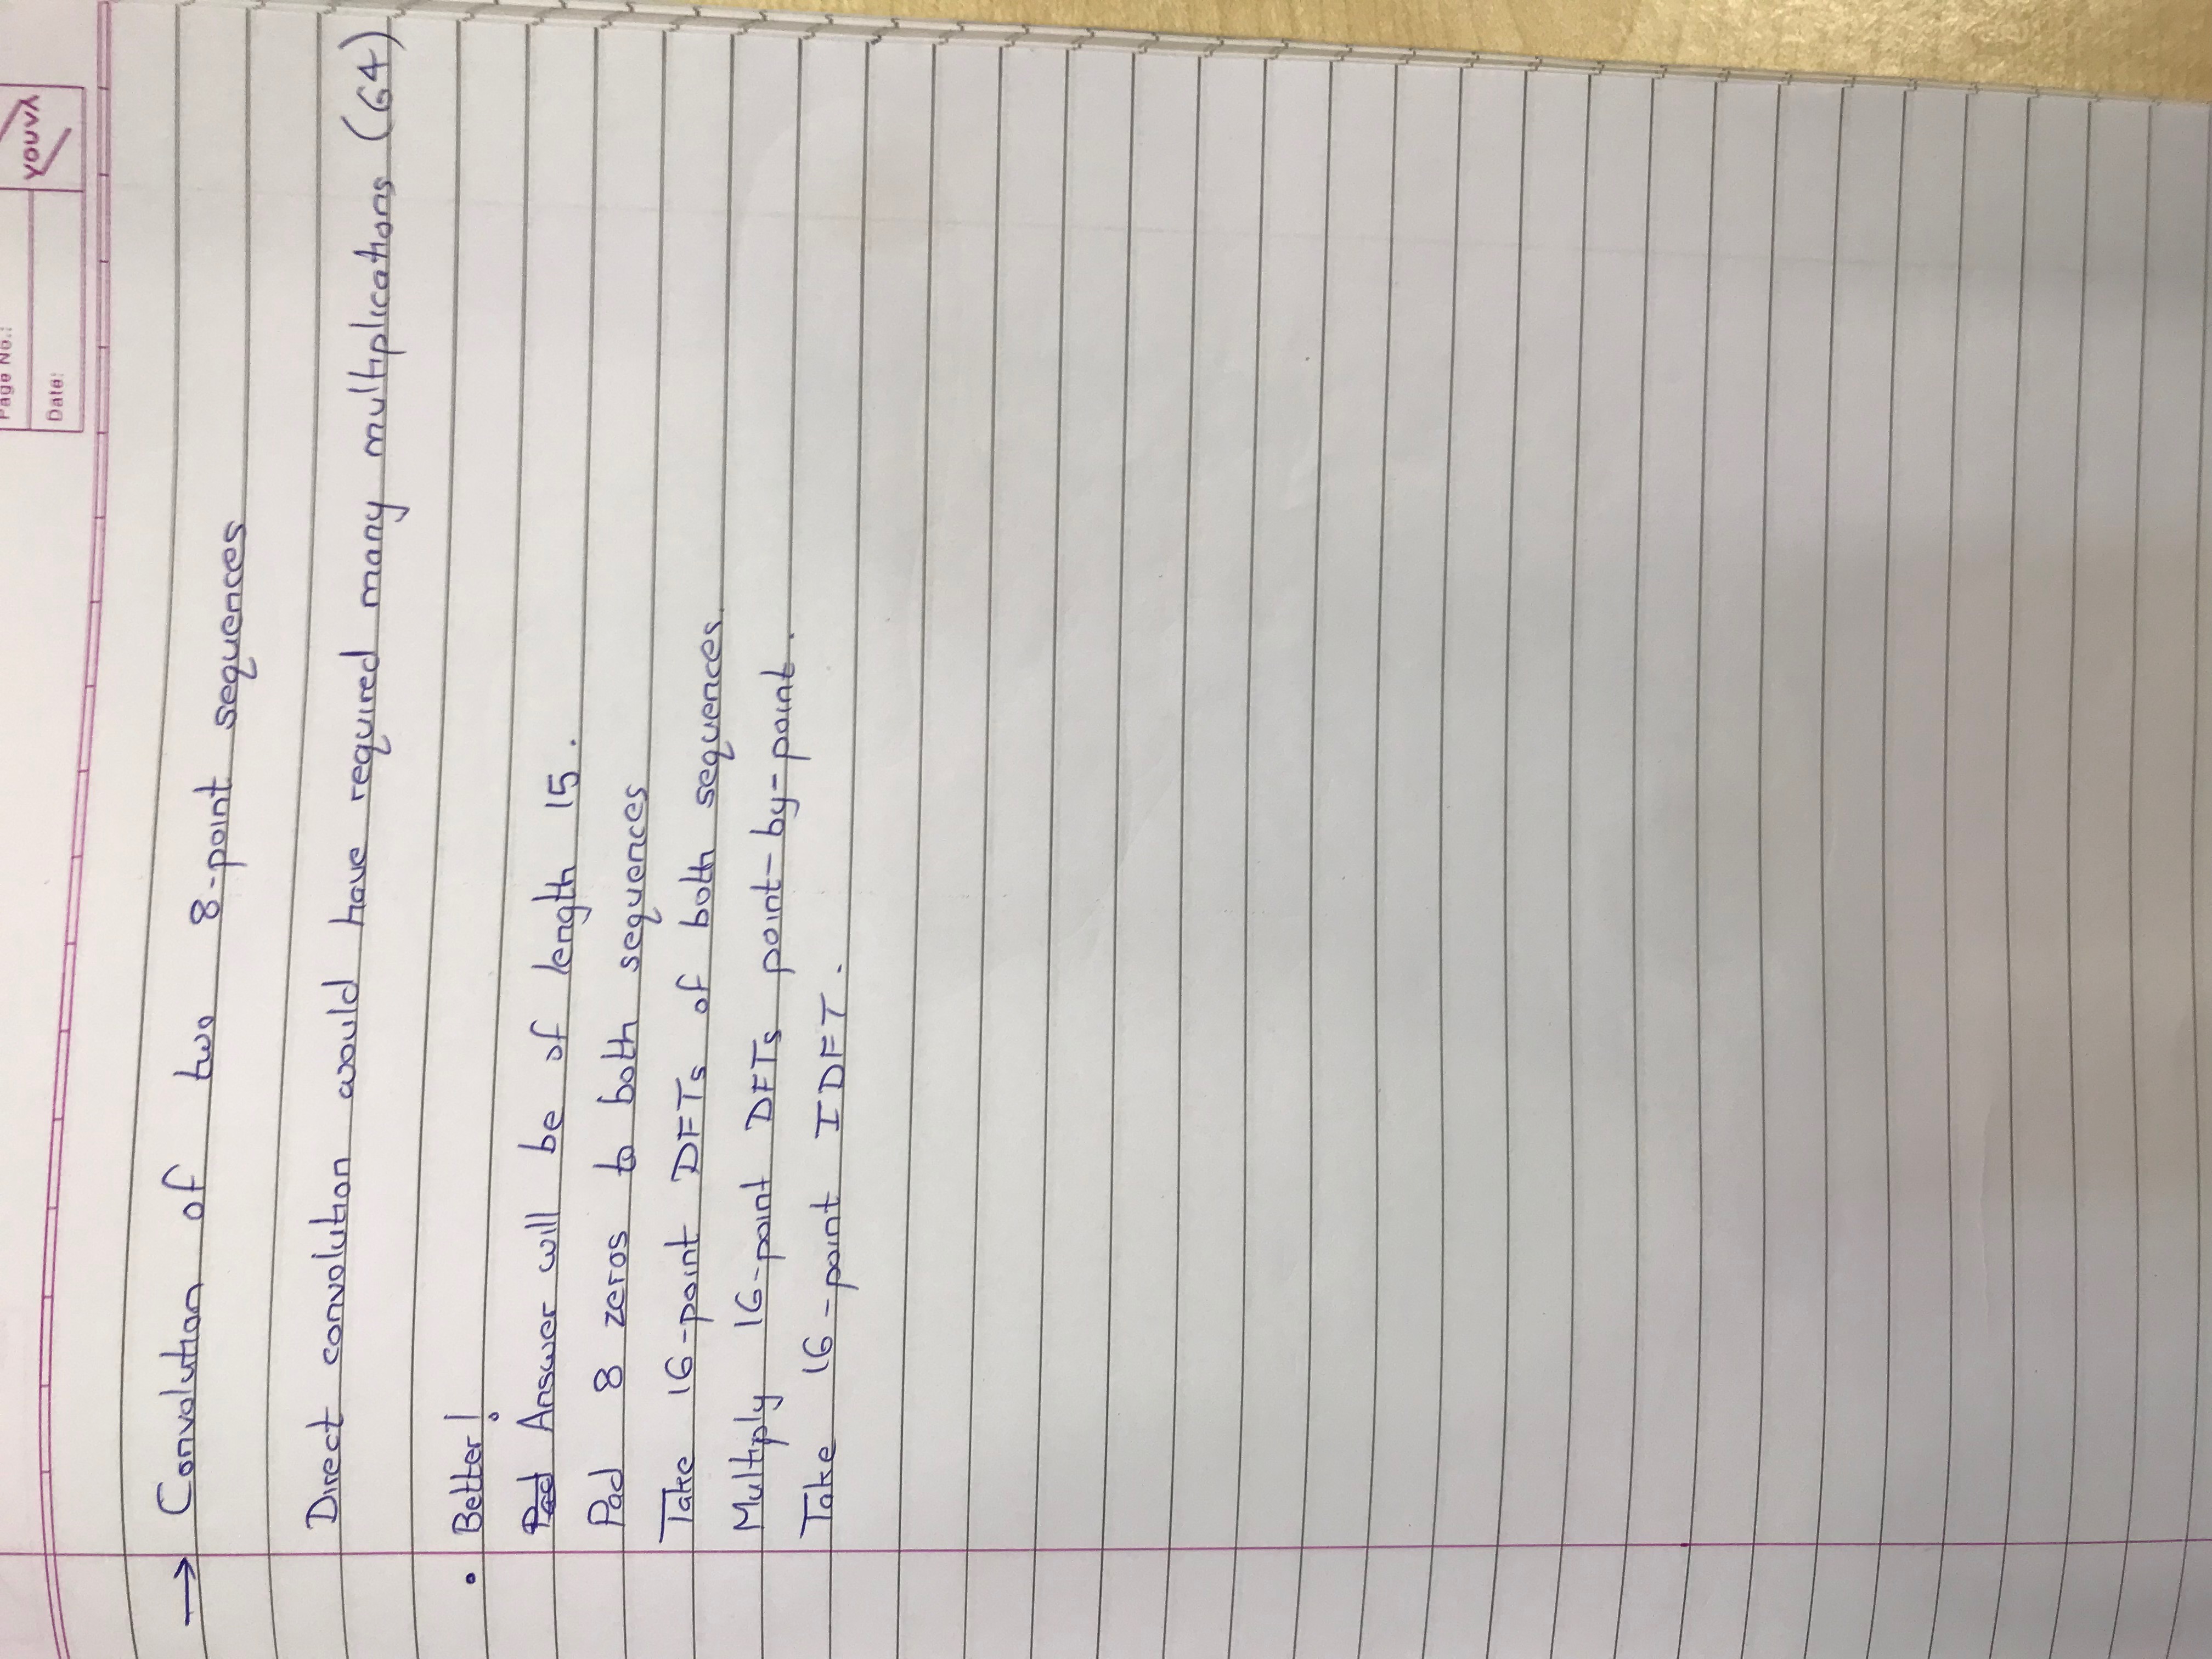 Page No.:
Date:
YOUVA
→ Convolution of two 8-point sequences
Direct convolution would have required many multiplications (64)
• Better!
Pad Answer will be of length 15.
Pad 8 zeros to both sequences
Take 16-point DFTs of both sequences.
Multiply 16-point DFTs point-by-point.
Take 16-point IDFT.